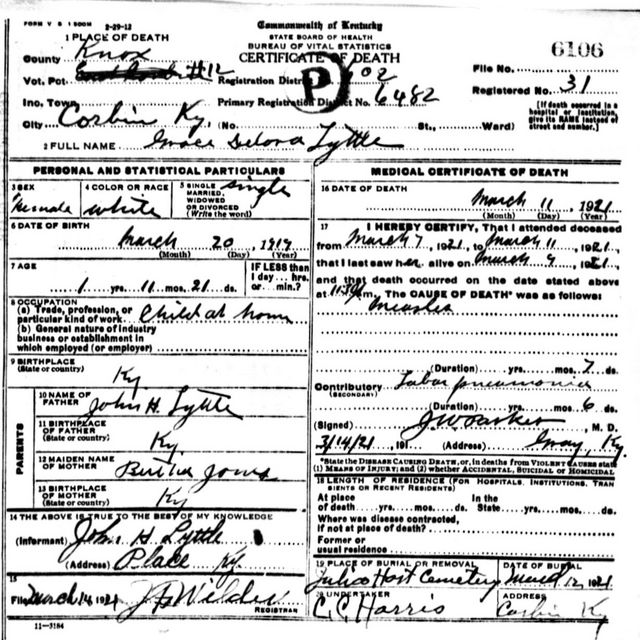 FORM V S 1 500M 2-29-12
Commonwealth of Kentucky
STATE BOARD OF HEALTH
BUREAU OF VITAL STATISTICS
CERTIFICATE OF DEATH
6106
1 PLACE OF DEATH
County Knox
Vot. Pct #12
Registration District 602
File No.
Inc. Town
Primary Registration District No. 6482
Registered No. 31
P
City Corbin Ky. (No. St., Ward)
[If death occurred in a hospital or institution, give its NAME instead of street and number.]
2 FULL NAME Grace Delora Lyttle
PERSONAL AND STATISTICAL PARTICULARS
3 SEX Female
4 COLOR OR RACE white
5 SINGLE, MARRIED, WIDOWED OR DIVORCED (Write the word) single
6 DATE OF BIRTH
March 20, 1919
(Month) (Day) (Year)
7 AGE
1 yrs. 11 mos. 21 ds.
IF LESS than 1 day... hrs. or min.?
8 OCCUPATION
(a) Trade, profession, or particular kind of work Child at home
(b) General nature of industry business or establishment in which employed (or employer)
9 BIRTHPLACE
(State or country) Ky
PARENTS
10 NAME OF FATHER John H. Lyttle
11 BIRTHPLACE OF FATHER (State or country) Ky
12 MAIDEN NAME OF MOTHER Jones
13 BIRTHPLACE OF MOTHER (State or country) Ky
14 THE ABOVE IS TRUE TO THE BEST OF MY KNOWLEDGE
(Informant) John H Lyttle
(Address) Place Ky.
15
Filed March 14, 1921 Wilder
REGISTRAR
11-3184
MEDICAL CERTIFICATE OF DEATH
16 DATE OF DEATH
March 11, 1921
(Month) (Day) (Year)
17 I HEREBY CERTIFY, That I attended deceased
from March 7, 1921, to March 11, 1921
that I last saw her alive on March 9, 1921
and that death occurred on the date stated above
at m. The CAUSE OF DEATH* was as follows:
Measles
(Duration) yrs. mos. 7 ds.
Contributory (SECONDARY) Lobar pneumonia
(Duration) yrs. mos. 6 ds.
(Signed) J W Parker, M. D.
3/14/21, 191 (Address) Gray, Ky.
*State the DISEASE CAUSING DEATH, or, in deaths from VIOLENT CAUSES state (1) MEANS OF INJURY; and (2) whether ACCIDENTAL, SUICIDAL or HOMICIDAL
18 LENGTH OF RESIDENCE (FOR HOSPITALS, INSTITUTIONS, TRANSIENTS OR RECENT RESIDENTS)
At place of death yrs. mos. ds. In the State yrs. mos. ds.
Where was disease contracted, if not at place of death?
Former or usual residence
19 PLACE OF BURIAL OR REMOVAL Hart Cemetery
DATE OF BURIAL March 12, 1921
20 UNDERTAKER C. C. Harris
ADDRESS Corbin Ky